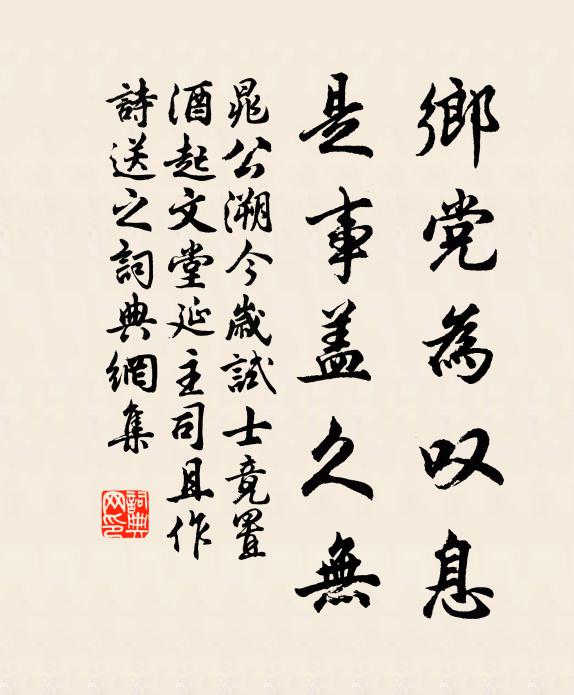 鄉党為叹息
是事盖久無
晁公溯今歳試士竟置
酒起文堂延主司且作
詩送之詞典網集
詞典网印